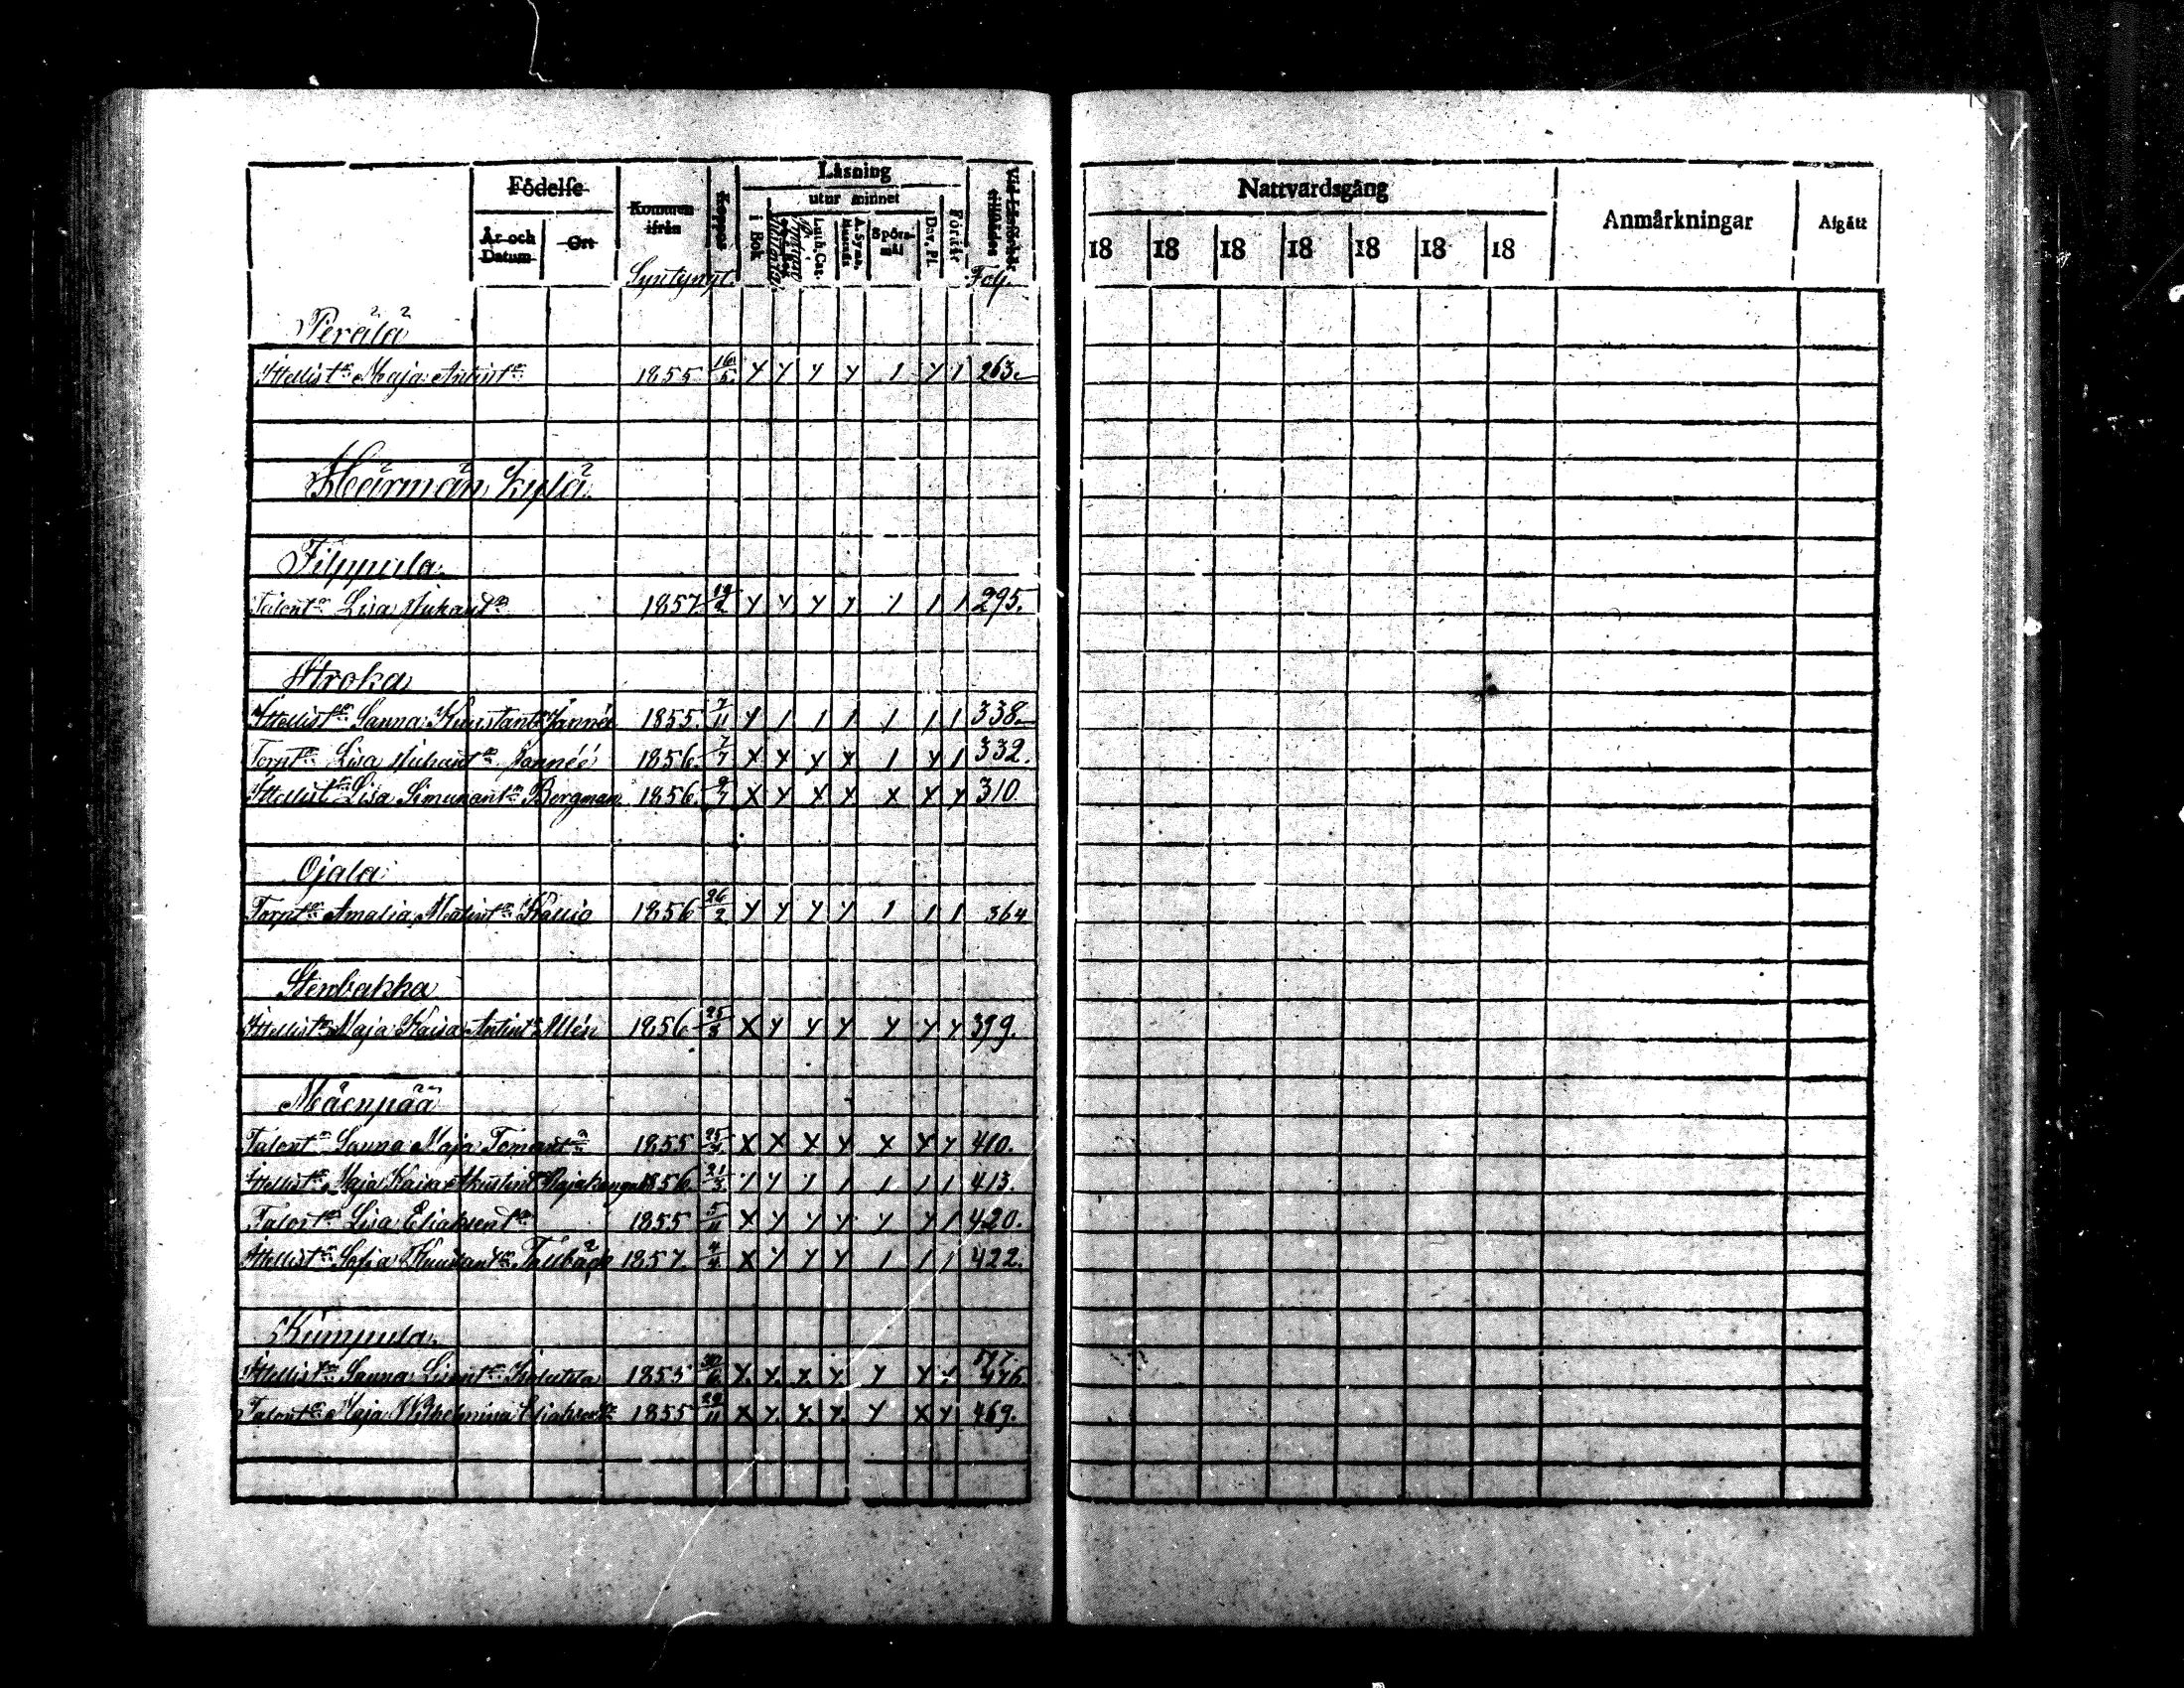 Födelse
År och Datum
Ort
Kommen ifrån
Syntynyt.
Koppor
Läsning
utur minnet
i Bok
Luth. Cat.
A. Symb. Hustafl.
Spörsmål
Dav. Pl.
Förstår
Vid Läsförhör tillstädes
Foly.
Nattvardsgång
18 18 18 18 18 18 18
Anmärkningar
Afgått
Perälä
Ittellist:a Maja Antint:a 1855 16/5 y y y y 1 y 1 263.
Härmän Kylä
Filppula
Talont:a Lisa Juhant:a 1857 y y y y 1 1 1 295.
Stroka
Ittellist:a Sanna Kustant:a Jannéé 1855. 7/11 y 1 1 1 1 1 1 338
Torpt:a Lisa Juhant:a Jannéé 1856. 7/7 x y y y 1 y 1 332.
Ittellist:a Lisa Simunant:a Bergman 1856. 9/7 x y y y x y y 310.
Ojala
Torpt:a Amalia Matint:a Kallio 1856 26/2 y y y y 1 1 1 364
Stenbakka
Ittellist:a Maja Kaisa Antint:a Alén 1856 25/8 x y y y y y y 399.
Mäenpää
Talont:a Sanna Maja Tomant:a 1855 x x x y x x y 410.
Ittellist:a Maja Kaisa 1856 21/3 y y 1 1 1 1 1 413.
Talont:a Lisa Eliaksent:a 1855 5/11 x y y y y y 1 420.
Ittellist:a Sofia Kustant:a Tallbäck 1857 4/4 x y y y 1 1 1 422.
Kumpula
Ittellist:a Sanna 1855 30/6 y. y. y. y. y y y 476.
Talont:a Maja Wilhelmina Eliaksent:a 1855 x y. x. y. y x y 469.